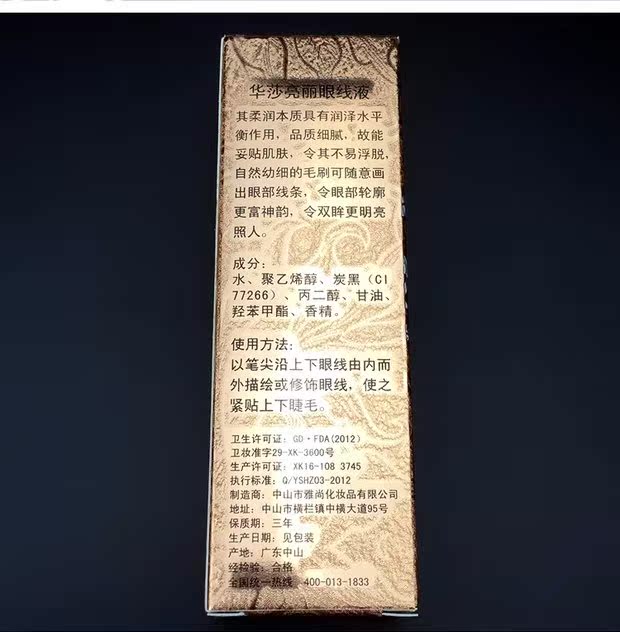 华莎亮丽眼线液
其柔润本质具有润泽水平
衡作用，品质细腻，故能
妥贴肌肤，令其不易浮脱，
自然幼细的毛刷可随意画
出眼部线条，令眼部轮廓
更富神韵，令双眸更明亮
照人。
成分：
水、聚乙烯醇、炭黑（CI
77266）、丙二醇、甘油、
羟苯甲酯、香精。
使用方法：
以笔尖沿上下眼线由内而
外描绘或修饰眼线，使之
紧贴上下睫毛。
卫生许可证：GD·FDA(2012)
卫妆准字29-XK-3600号
生产许可证：XK16-108 3745
执行标准：Q/YSHZ03-2012
制造商：中山市雅尚化妆品有限公司
地址：中山市横栏镇中横大道95号
保质期：三年
生产日期：见包装
产地：广东中山
经检验：合格
全国统一热线：400-013-1833